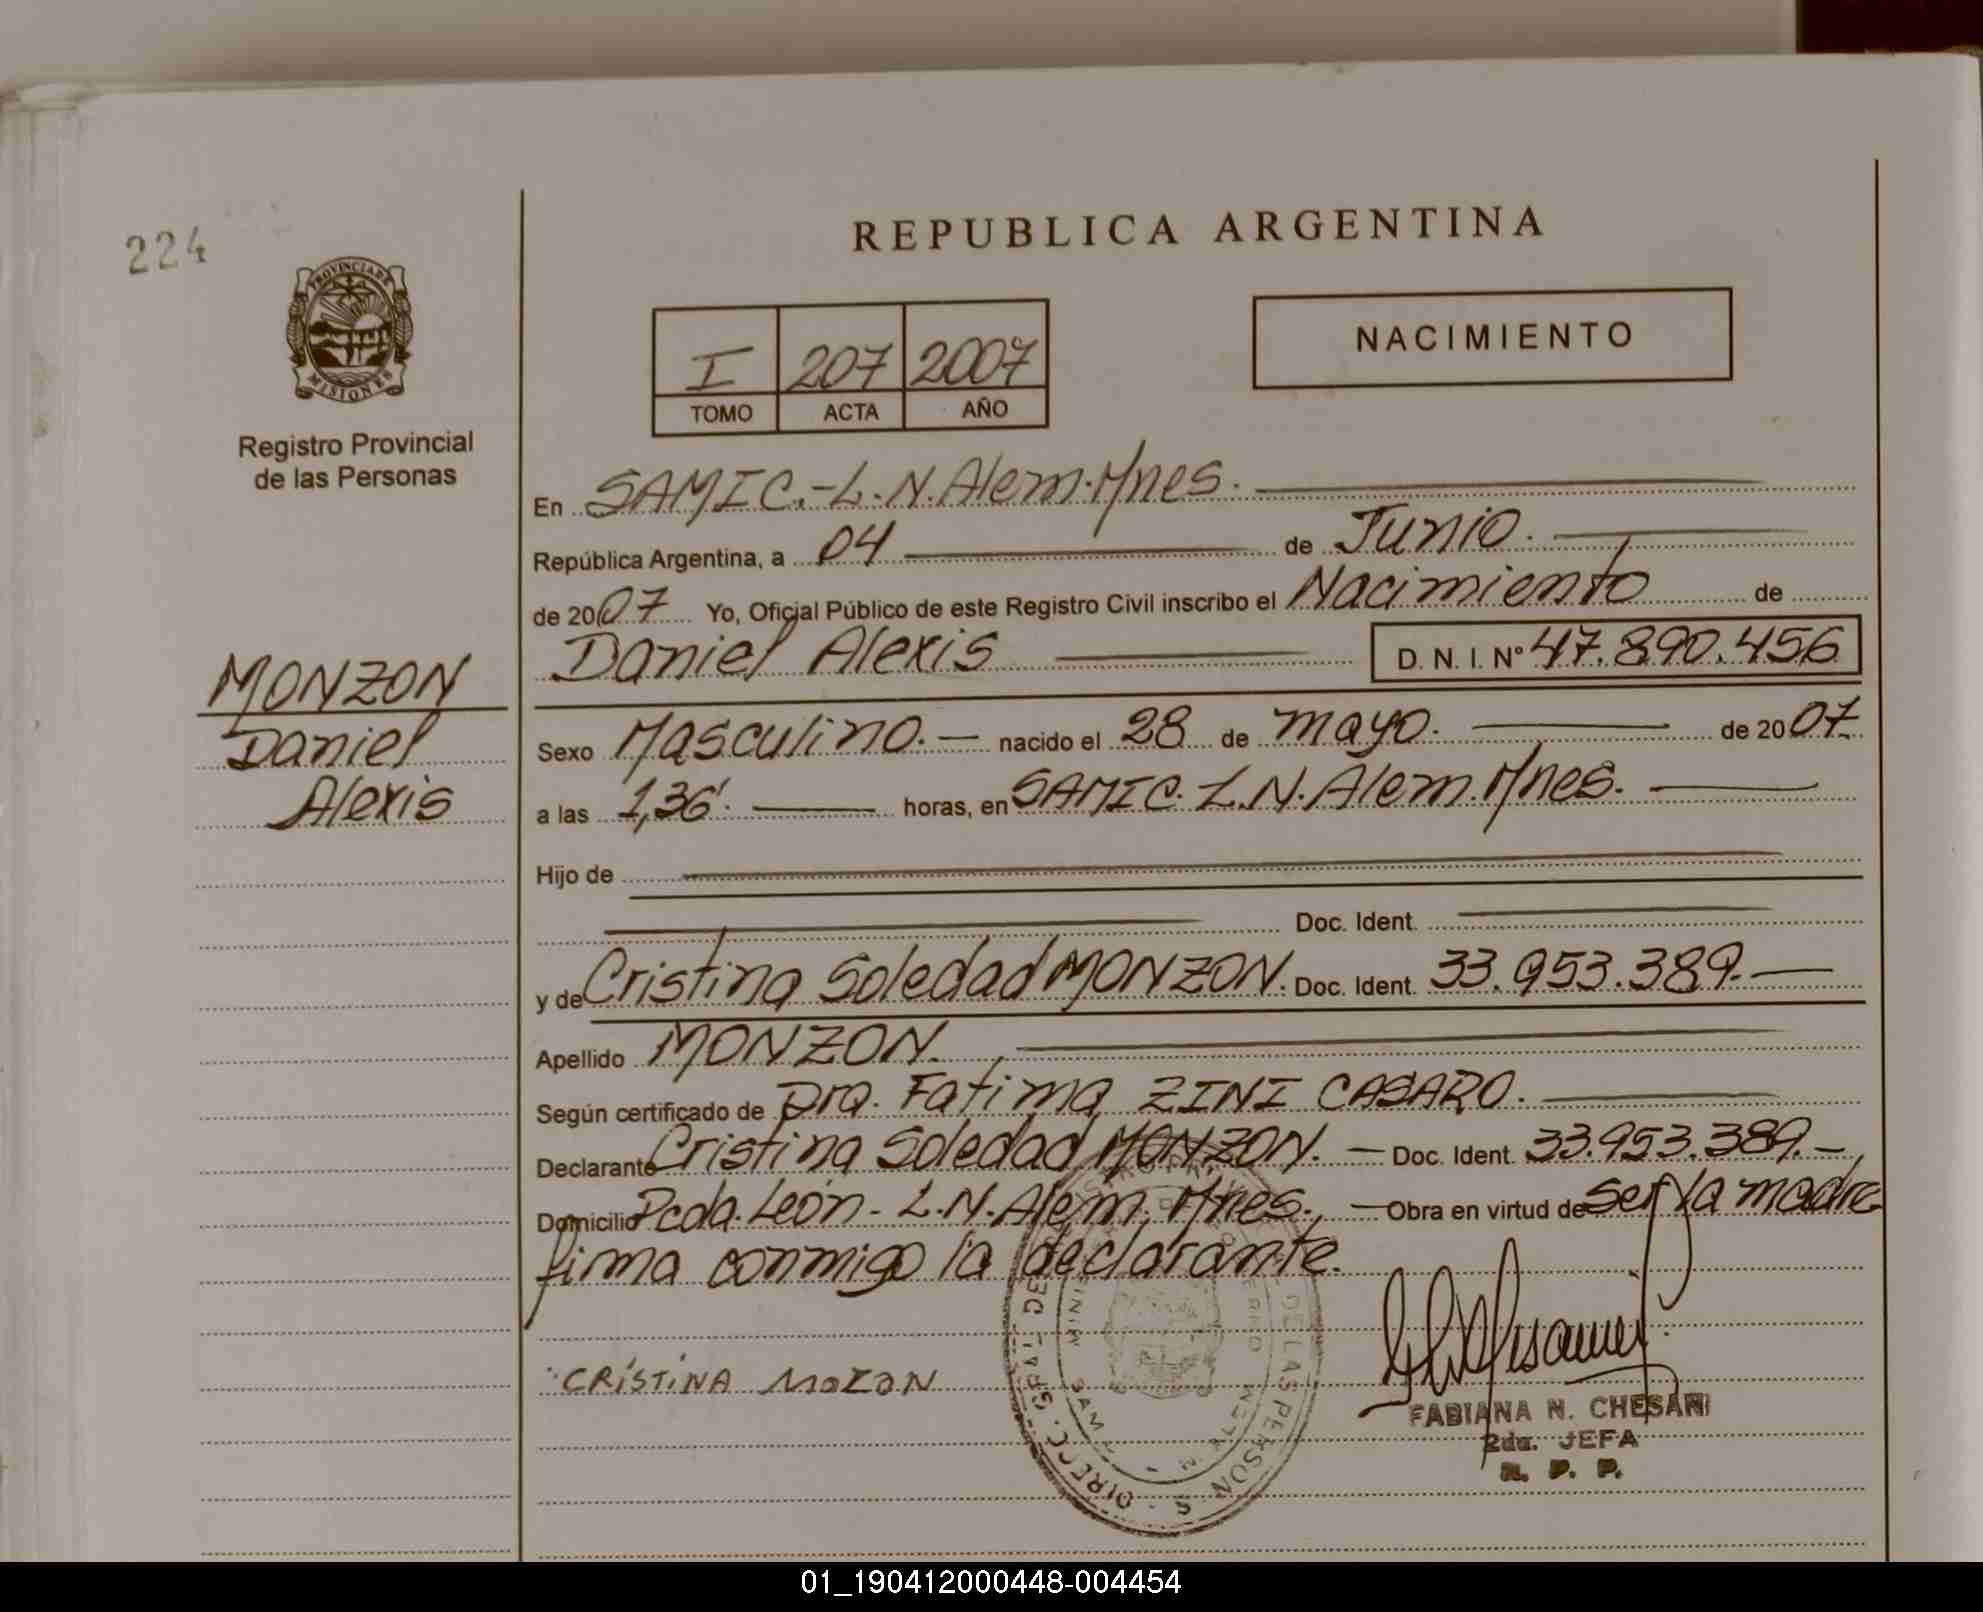 224
REPUBLICA ARGENTINA
PROVINCIA DE
MISIONES
Registro Provincial
de las Personas
I 207 2007
TOMO ACTA AÑO
NACIMIENTO
En SAMIC.-L.N.Alem.Mnes.
República Argentina, a 04 de Junio.
de 2007 Yo, Oficial Público de este Registro Civil inscribo el Nacimiento de
Daniel Alexis D. N. I. Nº 47.890.456
MONZON
Daniel
Alexis
Sexo Masculino.- nacido el 28 de mayo. de 2007.
a las 1,36'. horas, en SAMIC. L.N.Alem.Mnes.
Hijo de
Doc. Ident.
y de Cristina Soledad MONZON. Doc. Ident. 33.953.389.-
Apellido MONZON.
Según certificado de Dra. Fatima ZINI CASARO.
Declarante Cristina Soledad MONZON. - Doc. Ident. 33.953.389.-
Domicilio Pcda. León - L.N.Alem, Mnes., - Obra en virtud de ser la madre
firma conmigo la declarante.
CRISTINA MOZON
FABIANA N. CHESANI
2da. JEFA
R. P. P.
DE LAS PERSON S
DIRECC. GRAL. DE
01_190412000448-004454